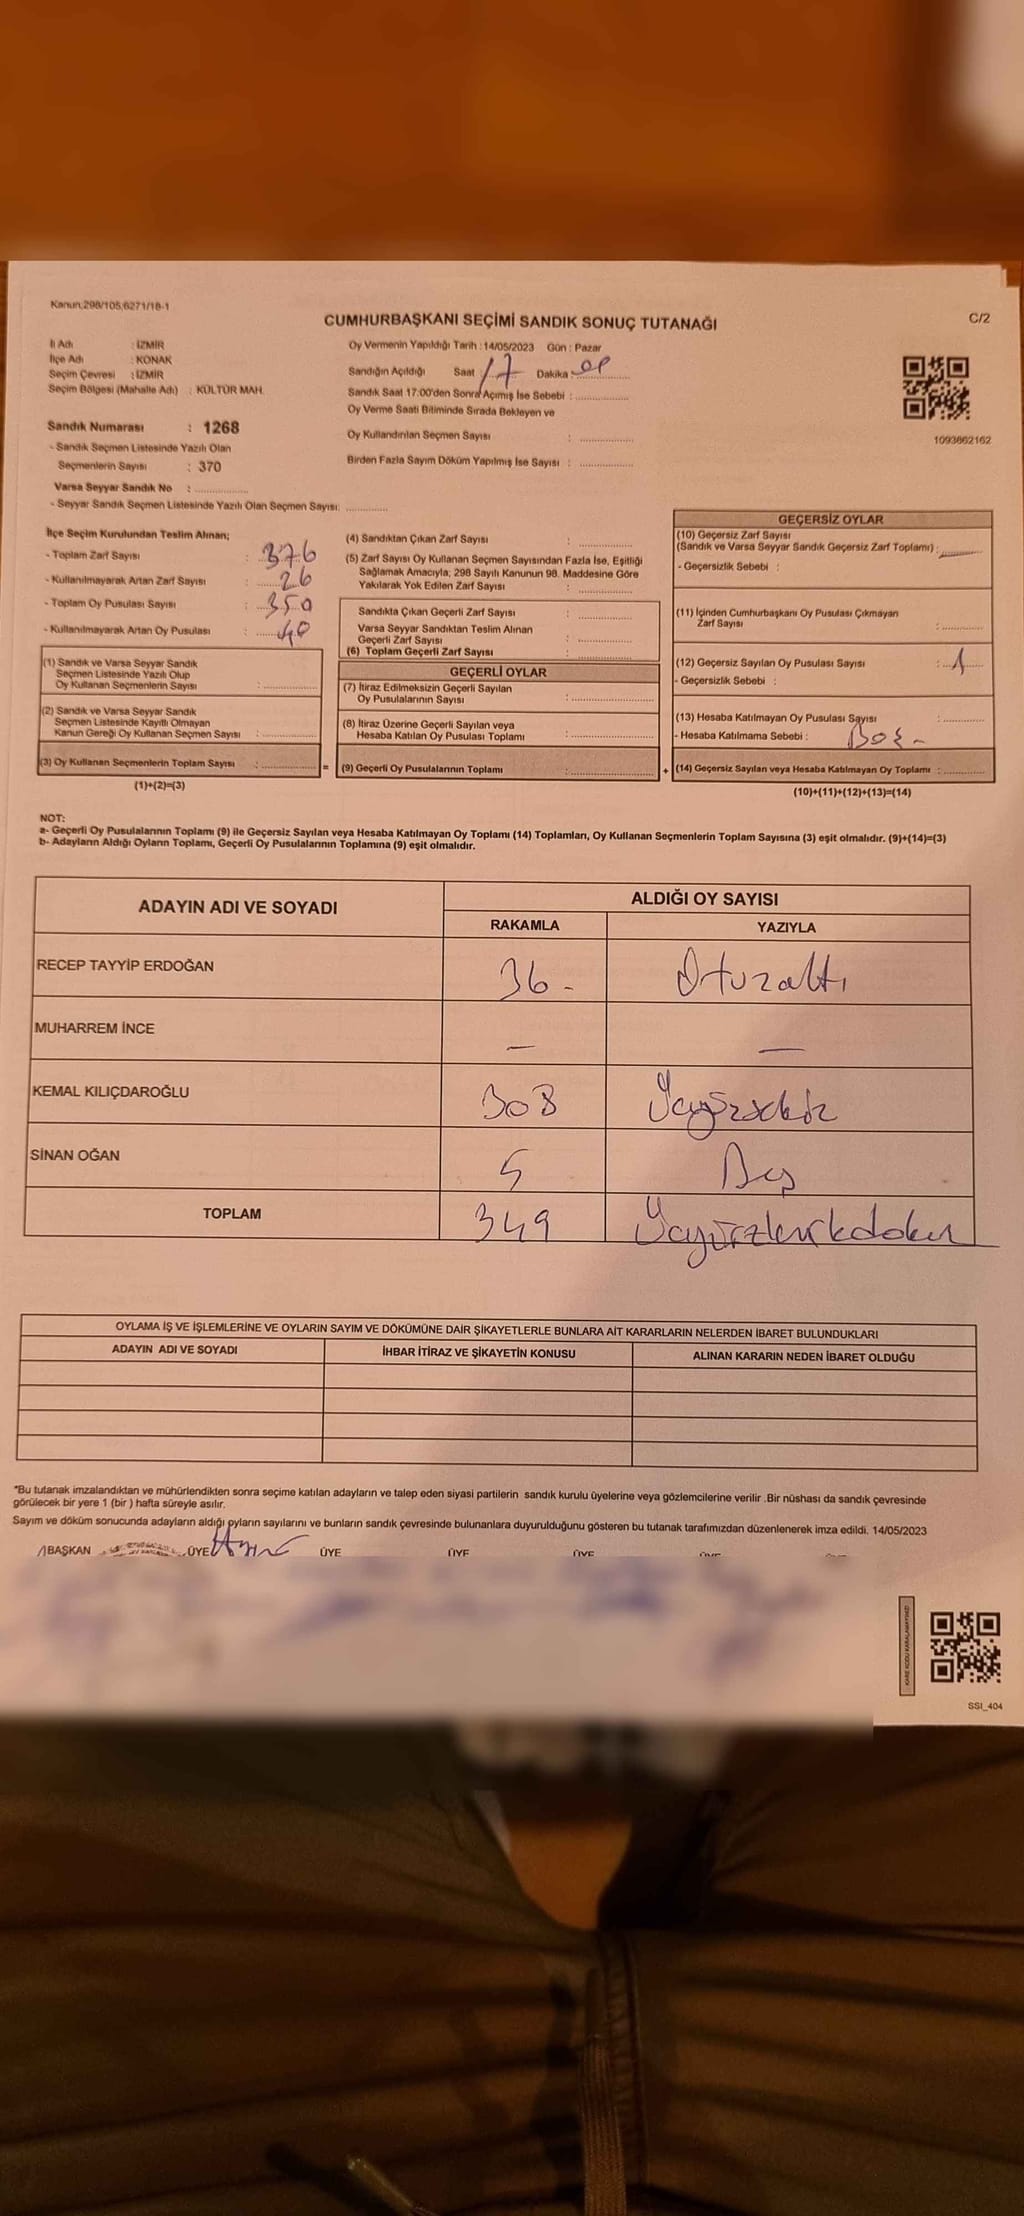 Kanun:298/105;6271/18-1
CUMHURBAŞKANI SEÇİMİ SANDIK SONUÇ TUTANAĞI
C/2
İl Adı : İZMİR
İlçe Adı : KONAK
Seçim Çevresi : İZMİR
Seçim Bölgesi (Mahalle Adı) : KÜLTÜR MAH.
Sandık Numarası : 1268
- Sandık Seçmen Listesinde Yazılı Olan
Seçmenlerin Sayısı : 370
Varsa Seyyar Sandık No :
- Seyyar Sandık Seçmen Listesinde Yazılı Olan Seçmen Sayısı:
Oy Vermenin Yapıldığı Tarih : 14/05/2023 Gün : Pazar
Sandığın Açıldığı Saat : 17 Dakika :
Sandık Saat 17:00'den Sonra Açımış İse Sebebi :
Oy Verme Saati Bitiminde Sırada Bekleyen ve
Oy Kullandırılan Seçmen Sayısı :
Birden Fazla Sayım Döküm Yapılmış İse Sayısı :
1093662162
İlçe Seçim Kurulundan Teslim Alınan;
- Toplam Zarf Sayısı : 376
- Kullanılmayarak Artan Zarf Sayısı : 26
- Toplam Oy Pusulası Sayısı : 350
- Kullanılmayarak Artan Oy Pusulası : 40
(1) Sandık ve Varsa Seyyar Sandık
Seçmen Listesinde Yazılı Olup
Oy Kullanan Seçmenlerin Sayısı :
(2) Sandık ve Varsa Seyyar Sandık
Seçmen Listesinde Kayıtlı Olmayan
Kanun Gereği Oy Kullanan Seçmen Sayısı :
(3) Oy Kullanan Seçmenlerin Toplam Sayısı :
(1)+(2)=(3)
(4) Sandıktan Çıkan Zarf Sayısı :
(5) Zarf Sayısı Oy Kullanan Seçmen Sayısından Fazla İse, Eşitliği
Sağlamak Amacıyla; 298 Sayılı Kanunun 98. Maddesine Göre
Yakılarak Yok Edilen Zarf Sayısı :
Sandıkta Çıkan Geçerli Zarf Sayısı :
Varsa Seyyar Sandıktan Teslim Alınan
Geçerli Zarf Sayısı :
(6) Toplam Geçerli Zarf Sayısı
=
GEÇERLİ OYLAR
(7) İtiraz Edilmeksizin Geçerli Sayılan
Oy Pusulalarının Sayısı :
(8) İtiraz Üzerine Geçerli Sayılan veya
Hesaba Katılan Oy Pusulası Toplamı :
(9) Geçerli Oy Pusulalarının Toplamı :
+
GEÇERSİZ OYLAR
(10) Geçersiz Zarf Sayısı
(Sandık ve Varsa Seyyar Sandık Geçersiz Zarf Toplamı) :
- Geçersizlik Sebebi :
(11) İçinden Cumhurbaşkanı Oy Pusulası Çıkmayan
Zarf Sayısı :
(12) Geçersiz Sayılan Oy Pusulası Sayısı : 1
- Geçersizlik Sebebi :
(13) Hesaba Katılmayan Oy Pusulası Sayısı :
- Hesaba Katılmama Sebebi : Boş
(14) Geçersiz Sayılan veya Hesaba Katılmayan Oy Toplamı :
(10)+(11)+(12)+(13)=(14)
NOT:
a- Geçerli Oy Pusulalarının Toplamı (9) ile Geçersiz Sayılan veya Hesaba Katılmayan Oy Toplamı (14) Toplamları, Oy Kullanan Seçmenlerin Toplam Sayısına (3) eşit olmalıdır. (9)+(14)=(3)
b- Adayların Aldığı Oyların Toplamı, Geçerli Oy Pusulalarının Toplamına (9) eşit olmalıdır.
ADAYIN ADI VE SOYADI
ALDIĞI OY SAYISI
RAKAMLA YAZIYLA
RECEP TAYYİP ERDOĞAN 36 - Otuzaltı
MUHARREM İNCE — —
KEMAL KILIÇDAROĞLU 308 Üçyüzsekiz
SİNAN OĞAN 5 Beş
TOPLAM 349
OYLAMA İŞ VE İŞLEMLERİNE VE OYLARIN SAYIM VE DÖKÜMÜNE DAİR ŞİKAYETLERLE BUNLARA AİT KARARLARIN NELERDEN İBARET BULUNDUKLARI
ADAYIN ADI VE SOYADI İHBAR İTİRAZ VE ŞİKAYETİN KONUSU ALINAN KARARIN NEDEN İBARET OLDUĞU
*Bu tutanak imzalandıktan ve mühürlendikten sonra seçime katılan adayların ve talep eden siyasi partilerin sandık kurulu üyelerine veya gözlemcilerine verilir .Bir nüshası da sandık çevresinde
görülecek bir yere 1 (bir ) hafta süreyle asılır.
Sayım ve döküm sonucunda adayların aldığı oyların sayılarını ve bunların sandık çevresinde bulunanlara duyurulduğunu gösteren bu tutanak tarafımızdan düzenlenerek imza edildi. 14/05/2023
BAŞKAN ÜYE ÜYE ÜYE ÜYE ÜYE
SSI_404